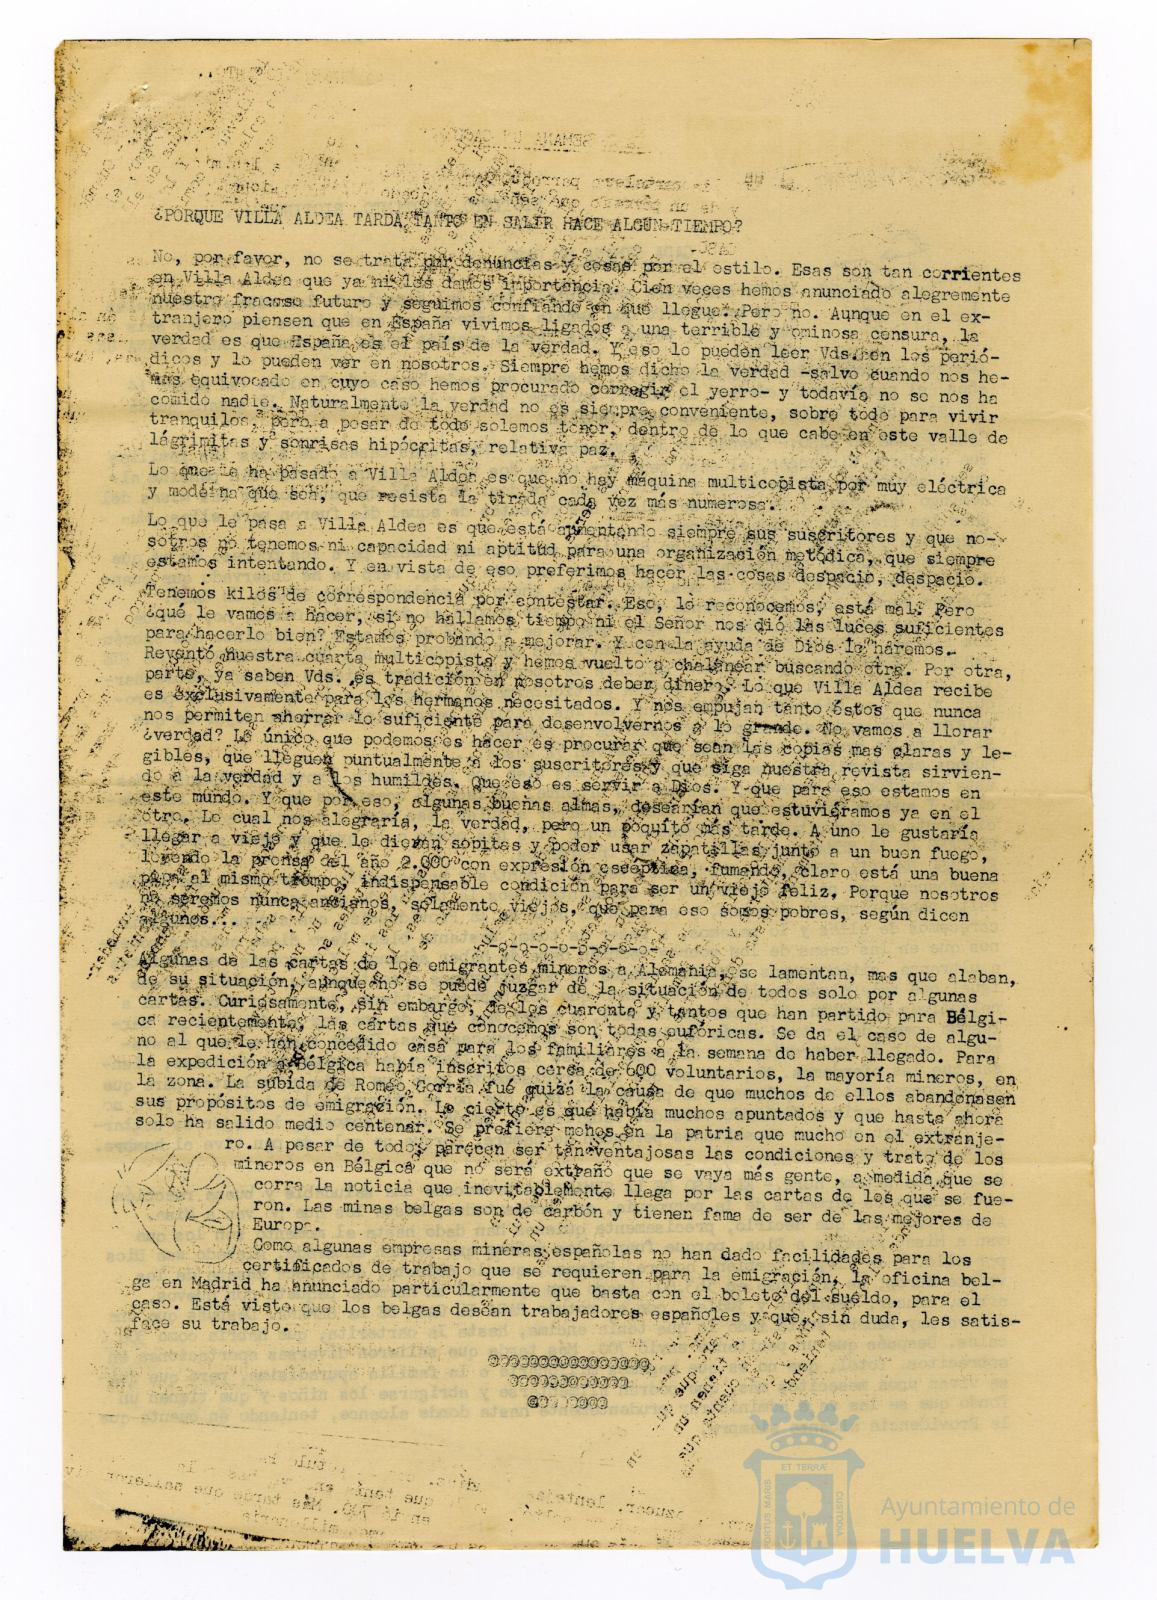 ¿PORQUE VILLA ALDEA TARDA TANTO EN SALIR HACE ALGUN TIEMPO?
No, por favor, no se trata por denuncias y cosas por el estilo. Esas son tan corrientes
en Villa Aldea que ya ni les damos importancia. Cien veces hemos anunciado alegremente
nuestro fracaso futuro y seguimos confiando en que llegue. Pero no. Aunque en el ex-
tranjero piensen que en España vivimos ligados a una terrible y ominosa censura, la
verdad es que España es el país de la verdad. Y eso lo pueden leer Vds. en los perió-
dicos y lo pueden ver en nosotros. Siempre hemos dicho la verdad -salvo cuando nos he-
mos equivocado en cuyo caso hemos procurado corregir el yerro- y todavía no se nos ha
comido nadie. Naturalmente la verdad no es siempre conveniente, sobre todo para vivir
tranquilos, pero a pesar de todo solemos tener, dentro de lo que cabe en este valle de
lágrimitas y sonrisas hipócritas, relativa paz.
Lo que le ha pasado a Villa Aldea es que no hay máquina multicopista por muy eléctrica
y moderna que sea, que resista la tirada cada vez más numerosa.
Lo que le pasa a Villa Aldea es que está aumentando siempre sus suscritores y que no-
sotros no tenemos ni capacidad ni aptitud para una organización metódica, que siempre
estamos intentando. Y en vista de eso preferimos hacer las cosas despacio, despacio.
Tenemos kilos de correspondencia por contestar. Eso, lo reconocemos, está mal. Pero
¿qué le vamos a hacer, si no hallamos tiempo ni el Señor nos dió las luces suficientes
para hacerlo bien? Estamos probando a mejorar. Y con la ayuda de Dios lo haremos.
Reventó nuestra cuarta multicopista y hemos vuelto a chalanear buscando otra. Por otra,
parte, ya saben Vds. es tradición en nosotros deber dinero. Lo que Villa Aldea recibe
es exclusivamente para los hermanos necesitados. Y nos empujan tanto éstos que nunca
nos permiten ahorrar lo suficiente para desenvolvernos a lo grande. No vamos a llorar
¿verdad? Lo único que podemos es hacer es procurar que sean las copias mas claras y le-
gibles, que lleguen puntualmente a los suscritores y que siga nuestra revista sirvien-
do a la verdad y a los humildes. Que eso es servir a Dios. Y que para eso estamos en
este mundo. Y que por eso, algunas buenas almas, desearían que estuviéramos ya en el
otro. Lo cual nos alegraría, la verdad, pero un poquito más tarde. A uno le gustaría
llegar a viejo y que le dieran sopitas y poder usar zapatillas junto a un buen fuego,
leyendo la prensa del año 2.000 con expresión escéptica, fumando, claro está una buena
pipa al mismo tiempo, indispensable condición para ser un viejo feliz. Porque nosotros
no seremos nunca ancianos, solamente viejos, que para eso somos pobres, según dicen
algunos...
-o-o-o-o-o-o-o-
Algunas de las cartas de los emigrantes mineros a Alemania, se lamentan, mas que alaban,
de su situación, aunque no se puede juzgar de la situación de todos solo por algunas
cartas. Curiosamente, sin embargo, de los cuarenta y tantos que han partido para Bélgi-
ca recientemente, las cartas que conocemos son todas eufóricas. Se da el caso de algu-
no al que le han concedido casa para los familiares a la semana de haber llegado. Para
la expedición a Bélgica había inscritos cerca de 600 voluntarios, la mayoría mineros, en
la zona. La subida de Romeo Gorría fué quizá la causa de que muchos de ellos abandonasen
sus propósitos de emigración. Lo cierto es que había muchos apuntados y que hasta ahora
solo ha salido medio centenar. Se prefiere menos en la patria que mucho en el extranje-
ro. A pesar de todo, parecen ser tan ventajosas las condiciones y trato de los
mineros en Bélgica que no será extraño que se vaya más gente, a medida que se
corra la noticia que inevitablemente llega por las cartas de los que se fue-
ron. Las minas belgas son de carbón y tienen fama de ser de las mejores de
Europa.
Como algunas empresas mineras españolas no han dado facilidades para los
certificados de trabajo que se requieren para la emigración, la oficina bel-
ga en Madrid ha anunciado particularmente que basta con el boleto del sueldo, para el
caso. Está visto que los belgas desean trabajadores españoles y que, sin duda, les satis-
face su trabajo.
@@@@@@@@@@@@@@@@@@
@@@@@@@@@@@@@
@@@@@@@@@
PORTUS MARIS ET TERRÆ CUSTODIA
Ayuntamiento de
HUELVA